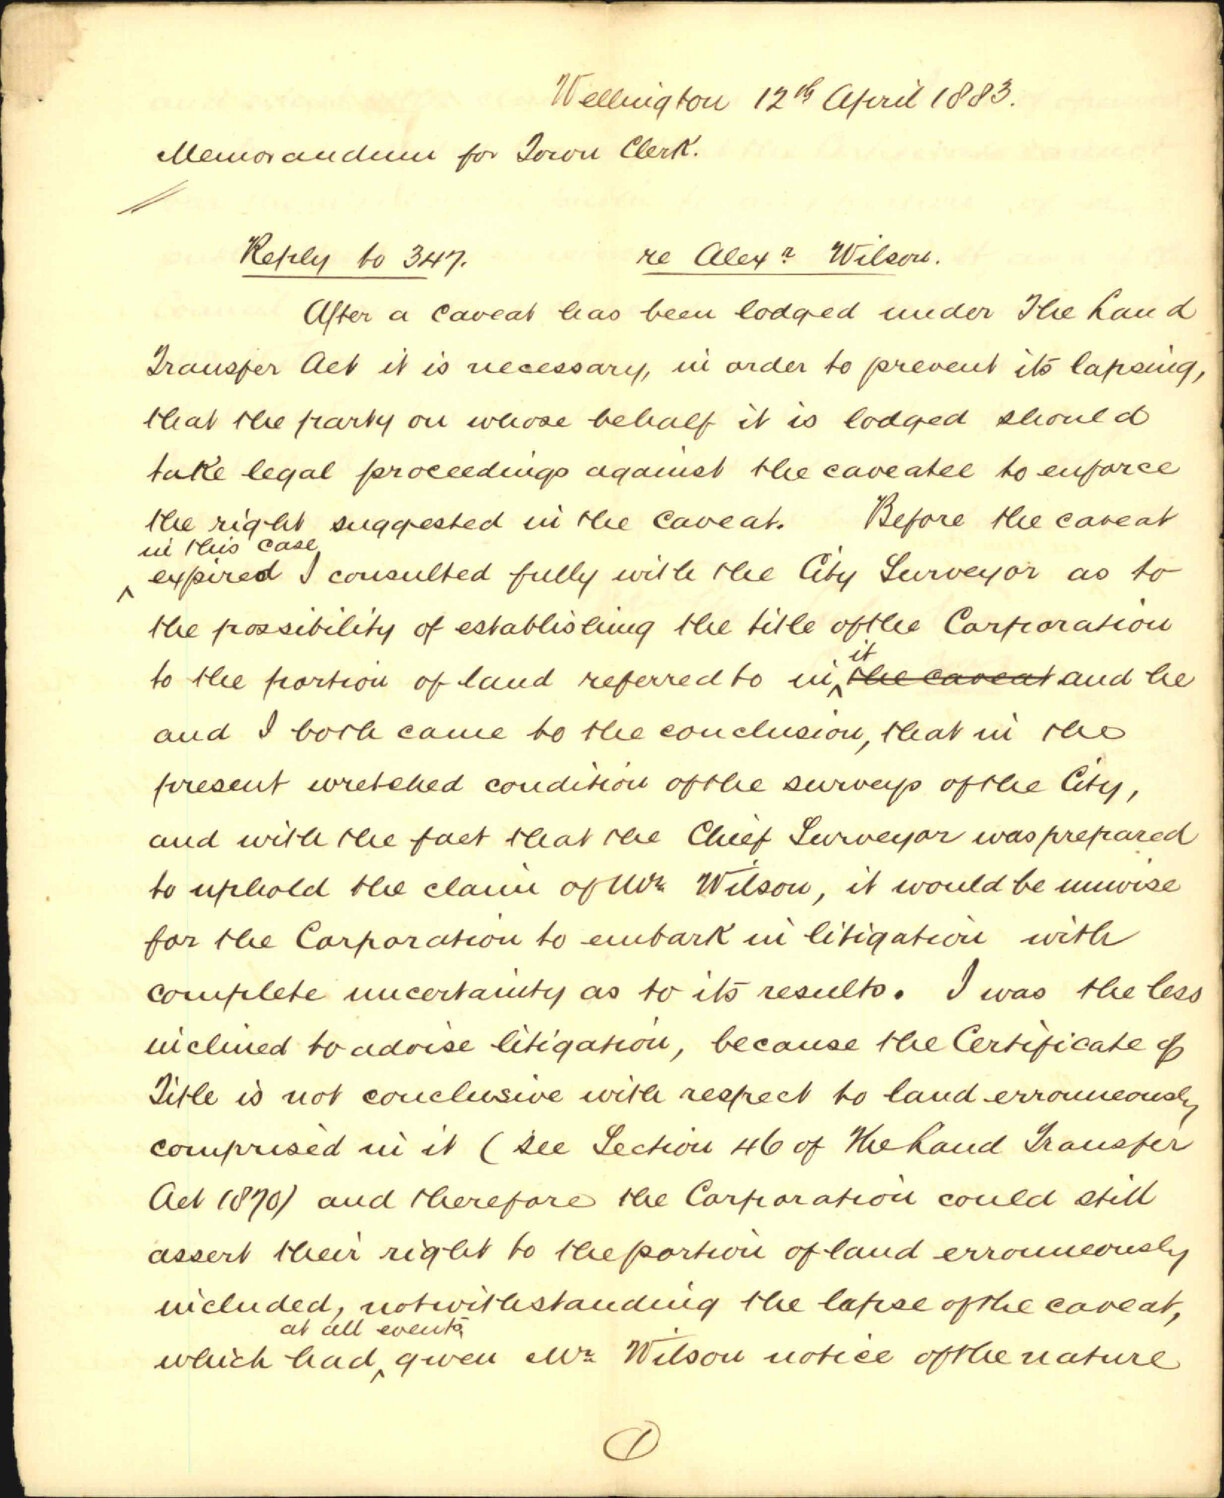 Wellington 12th April 1883.
Memorandum for Town Clerk.
Reply to 347. re Alexr Wilson.
After a caveat has been lodged under The Land
Transfer Act it is necessary, in order to prevent its lapsing,
that the party on whose behalf it is lodged should
take legal proceedings against the caveatee to enforce
the right suggested in the caveat. Before the caveat
in this case
^ expired I consulted fully with the City Surveyor as to
the possibility of establishing the title of the Corporation
it
to the portion of land referred to in ^ the caveat and he
and I both came to the conclusion, that in the
present wretched condition of the surveys of the City,
and with the fact that the Chief Surveyor was prepared
to uphold the claim of Mr Wilson, it would be unwise
for the Corporation to embark in litigation with
complete uncertainty as to its results. I was the less
inclined to advise litigation, because the Certificate of
Title is not conclusive with respect to land erronneously
comprised in it (see Section 46 of The Land Transfer
Act 1870) and therefore the Corporation could still
assert their right to the portion of land erronneously
included, notwithstanding the lapse of the caveat,
at all events
which had ^ given Mr Wilson notice of the nature
1